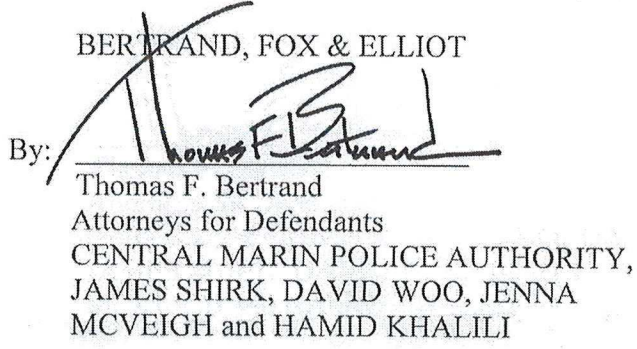 BERTRAND, FOX & ELLIOT
By: Thomas F. Bertrand
Thomas F. Bertrand
Attorneys for Defendants
CENTRAL MARIN POLICE AUTHORITY,
JAMES SHIRK, DAVID WOO, JENNA
MCVEIGH and HAMID KHALILI